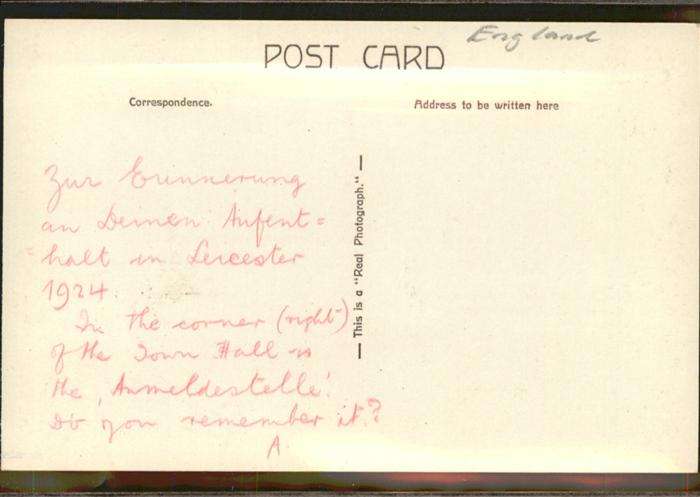 England
POST CARD
Correspondence.
Address to be written here
Zur Erinnerung
an Deinen Aufent=
halt in Leicester
1924.
In the corner (right)
of the Town Hall is
the ‚Anmeldestelle‘.
Do you remember it?
A
— This is a "Real Photograph." —